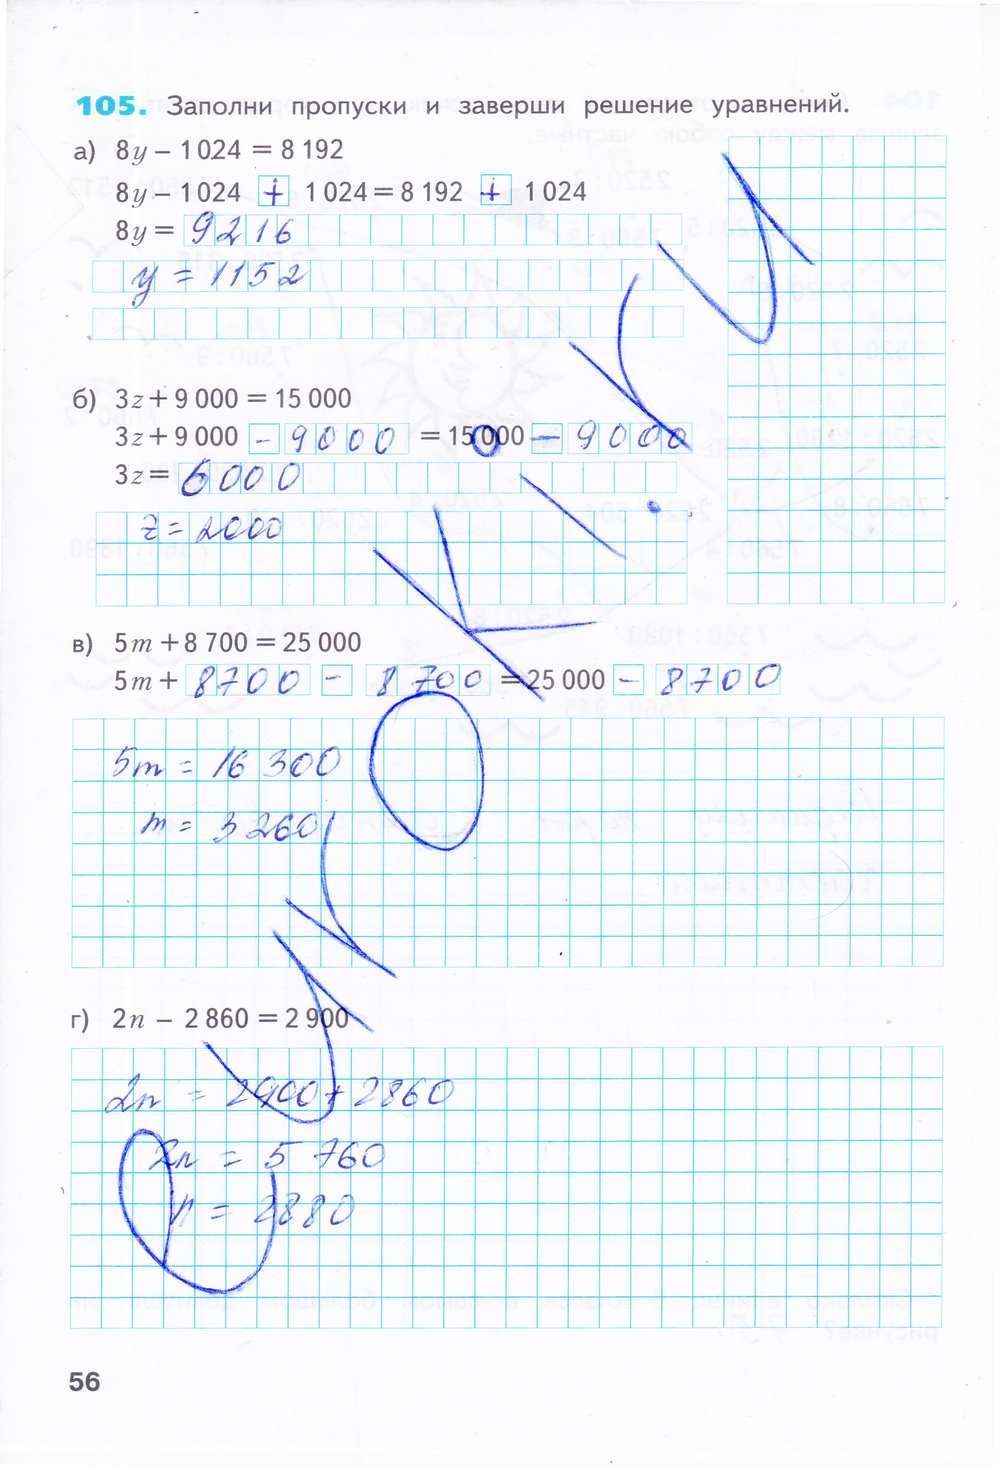 105. Заполни пропуски и заверши решение уравнений.
а) 8y – 1 024 = 8 192
8y – 1 024 + 1 024 = 8 192 + 1 024
8y = 9216
y = 1152
б) 3z + 9 000 = 15 000
3z + 9 000 – 9000 = 15 000 – 9000
3z = 6000
z = 2000
в) 5m + 8 700 = 25 000
5m + 8700 – 8700 = 25 000 – 8700
5m = 16 300
m = 3260
г) 2n – 2 860 = 2 900
2n = 2900 + 2860
2n = 5 760
n = 2880
56